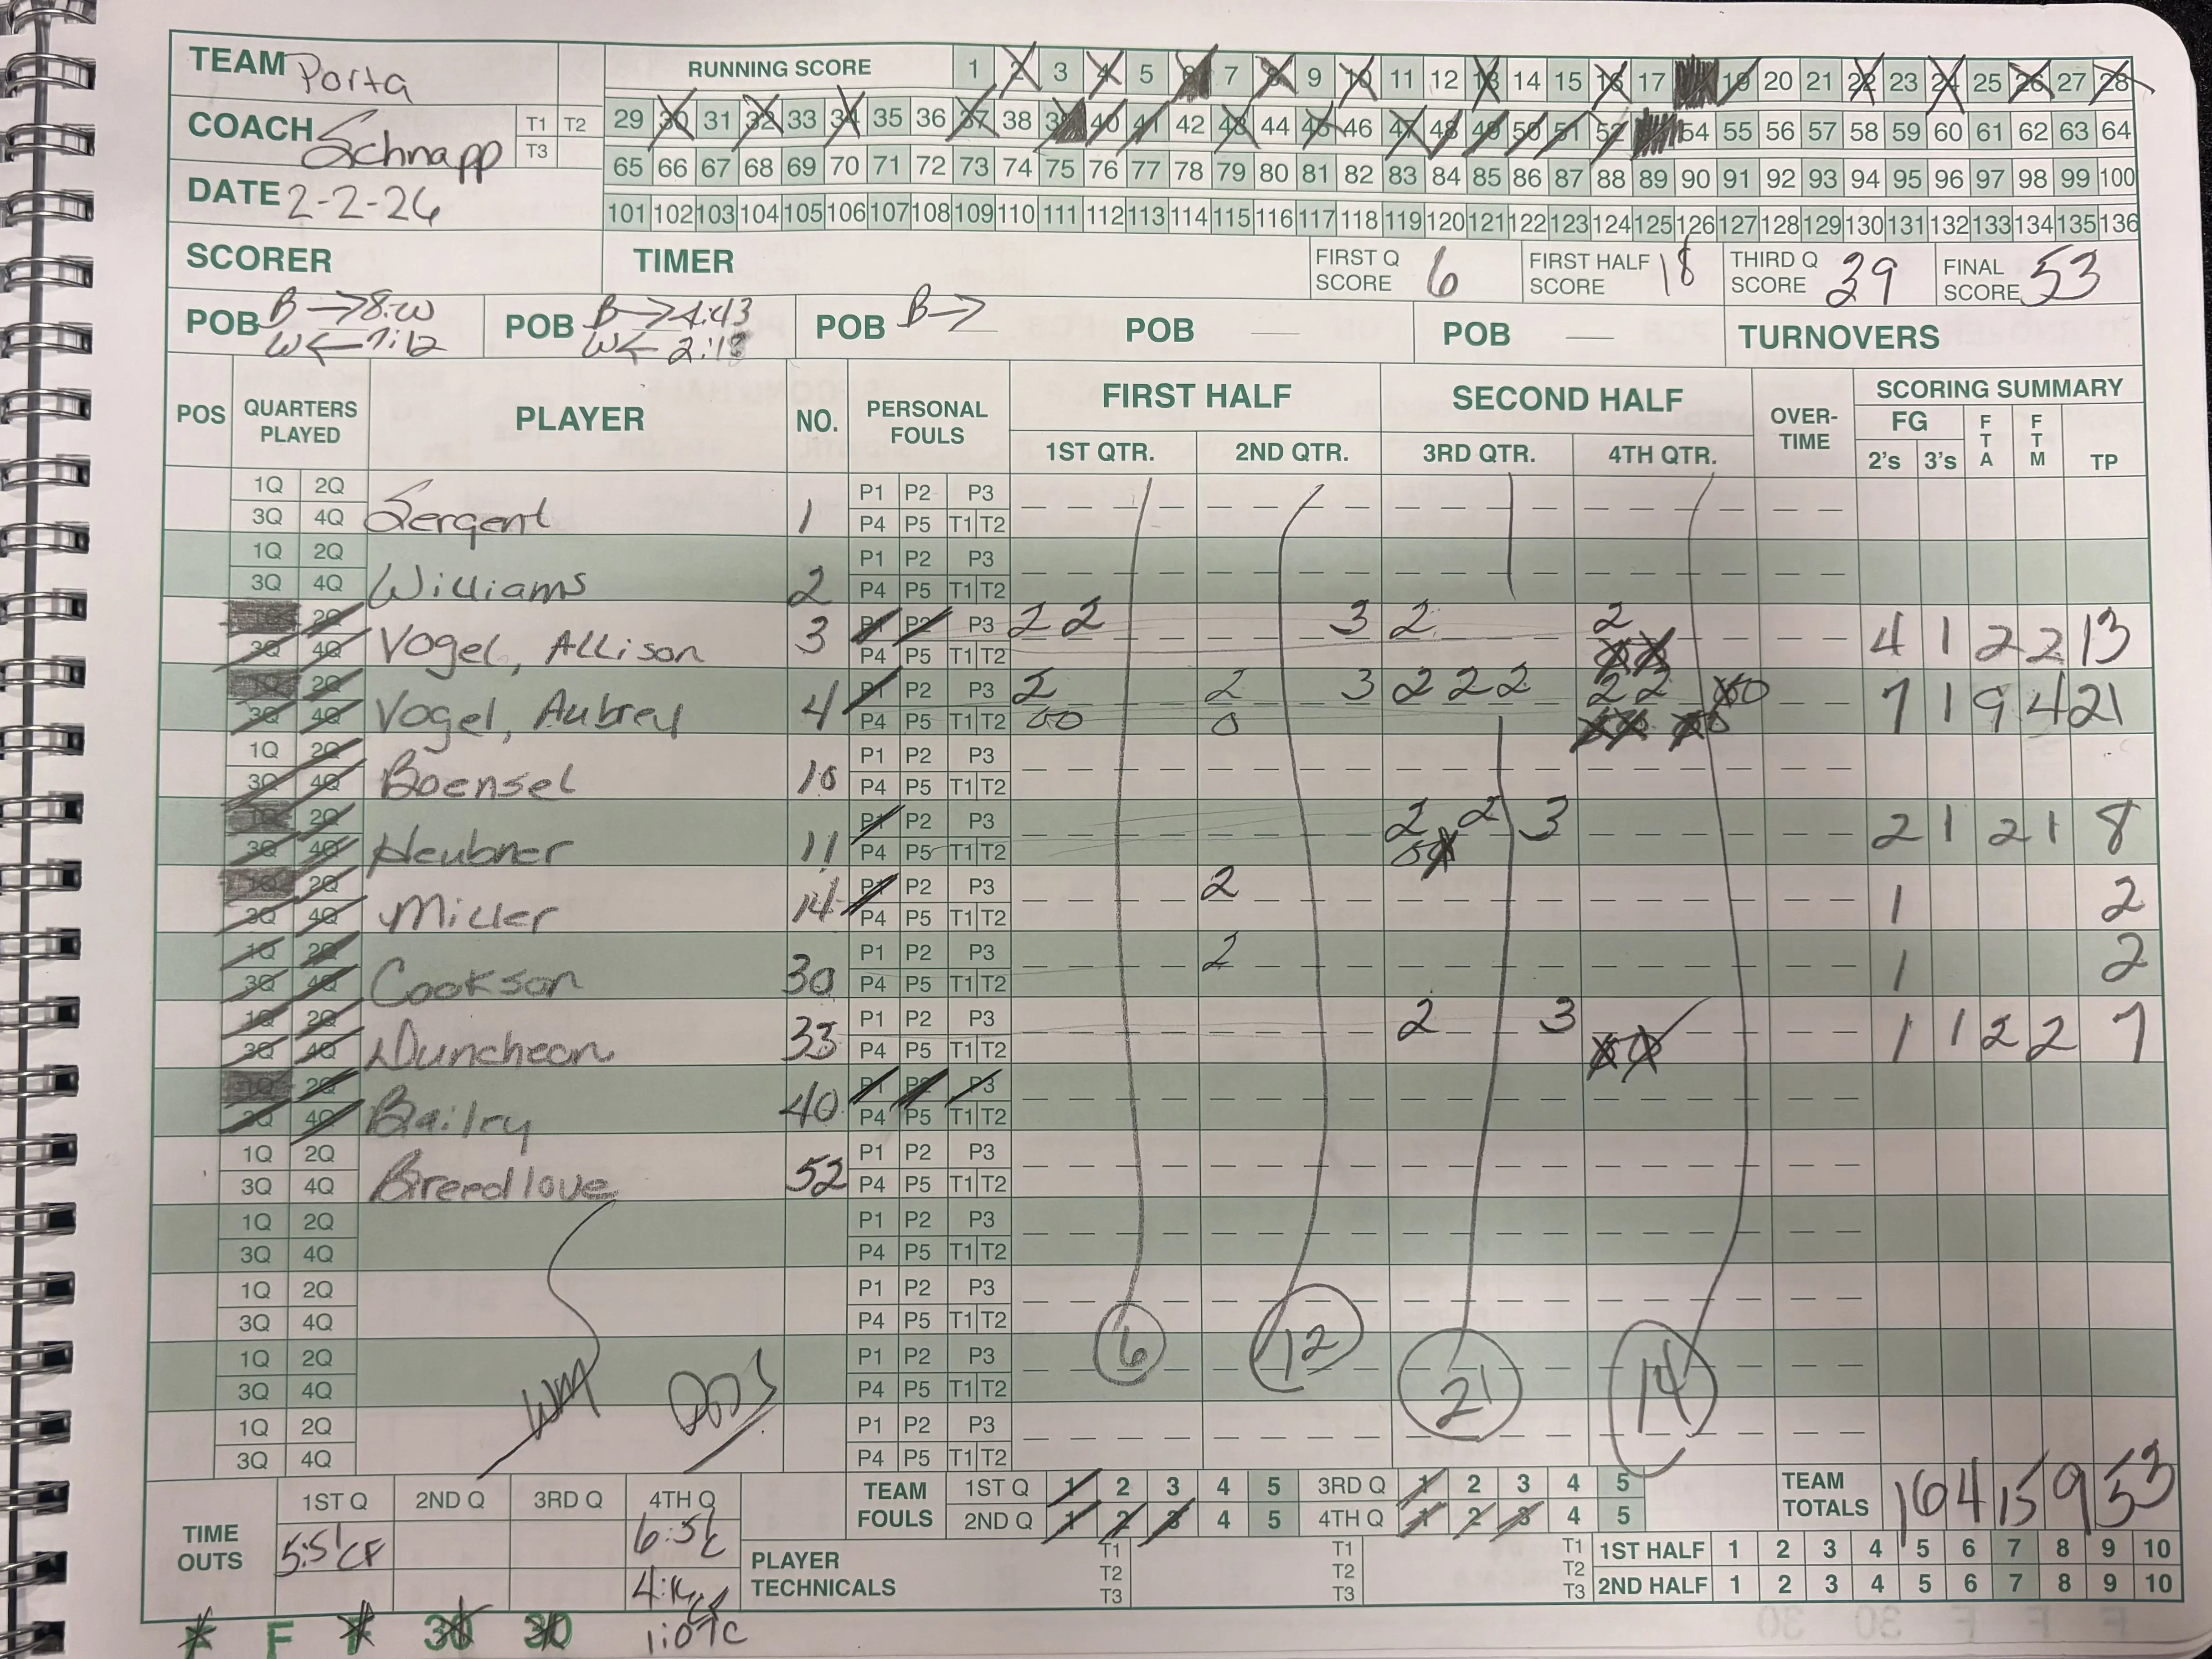 TEAM Porta
RUNNING SCORE 1 2 3 4 5 6 7 8 9 10 11 12 13 14 15 16 17 18 19 20 21 22 23 24 25 26 27 28
COACH Schnapp T1 T2 T3
29 30 31 32 33 34 35 36 37 38 39 40 41 42 43 44 45 46 47 48 49 50 51 52 54 55 56 57 58 59 60 61 62 63 64
65 66 67 68 69 70 71 72 73 74 75 76 77 78 79 80 81 82 83 84 85 86 87 88 89 90 91 92 93 94 95 96 97 98 99 100
DATE 2-2-26
101 102 103 104 105 106 107 108 109 110 111 112 113 114 115 116 117 118 119 120 121 122 123 124 125 126 127 128 129 130 131 132 133 134 135 136
SCORER TIMER FIRST Q SCORE 6 FIRST HALF SCORE 18 THIRD Q SCORE 39 FINAL SCORE 53
POB B → 8:00 W ← 7:12 POB B → 4:43 W ← 2:18 POB B → POB POB TURNOVERS
POS QUARTERS PLAYED PLAYER NO. PERSONAL FOULS FIRST HALF SECOND HALF OVER-TIME SCORING SUMMARY
1ST QTR. 2ND QTR. 3RD QTR. 4TH QTR. FG 2's 3's FTA FTM TP
1Q 2Q P1 P2 P3
3Q 4Q Sergent 1 P4 P5 T1 T2
1Q 2Q P1 P2 P3
3Q 4Q Williams 2 P4 P5 T1 T2
2Q P1 P2 P3 2 2 3 2 2
3Q 4Q Vogel, Allison 3 P4 P5 T1 T2 4 1 2 2 13
1Q 2Q P1 P2 P3 2 2 3 2 2 2 2 2
3Q 4Q Vogel, Aubrey 4 P4 P5 T1 T2 7 1 9 4 21
1Q 2Q P1 P2 P3
3Q 4Q Boensel 10 P4 P5 T1 T2
1Q 2Q P1 P2 P3 2 2 3
3Q 4Q Heubner 11 P4 P5 T1 T2 2 1 2 1 8
1Q 2Q P1 P2 P3 2
3Q 4Q Miller 14 P4 P5 T1 T2 1 2
1Q 2Q P1 P2 P3 2
3Q 4Q Cookson 30 P4 P5 T1 T2 1 2
1Q 2Q P1 P2 P3 2 3
3Q 4Q Duncheon 33 P4 P5 T1 T2 1 1 2 2 7
1Q 2Q P1 P2 P3
3Q 4Q Bailry 40 P4 P5 T1 T2
1Q 2Q P1 P2 P3
3Q 4Q Breedlove 52 P4 P5 T1 T2
1Q 2Q P1 P2 P3
3Q 4Q P4 P5 T1 T2
1Q 2Q P1 P2 P3
3Q 4Q P4 P5 T1 T2
1Q 2Q P1 P2 P3 6 12 21 14
3Q 4Q P4 P5 T1 T2
1Q 2Q P1 P2 P3
3Q 4Q P4 P5 T1 T2
TIME OUTS 1ST Q 2ND Q 3RD Q 4TH Q
5:51 CF 6:51 C
1:07 C
TEAM FOULS 1ST Q 1 2 3 4 5 3RD Q 1 2 3 4 5
2ND Q 1 2 3 4 5 4TH Q 1 2 3 4 5
TEAM TOTALS 16 4 15 9 53
PLAYER TECHNICALS T1 T2 T3 T1 T2 T3 T1 T2 T3
1ST HALF 1 2 3 4 5 6 7 8 9 10
2ND HALF 1 2 3 4 5 6 7 8 9 10
F F F 30 30